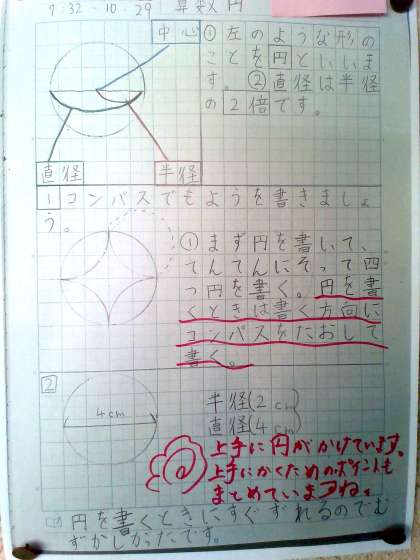 7:32・10・29 算数 円
中心
①左のような形の
ことを円といいま
す。②直径は半径
の2倍です。
直径
半径
1 コンパスでもようを書きましょ
う。
①まず円を書いて、
てんてんにそって四
つ円を書く。円を書
くときは書く方向に
コンパスをたおして
書く。
2
4cm
半径(2cm)
直径(4cm)
上手に円がかけています。
上手にかくためのポイントも
まとめていますね。
円を書くときにすぐずれるのでむ
ずかしかったです。